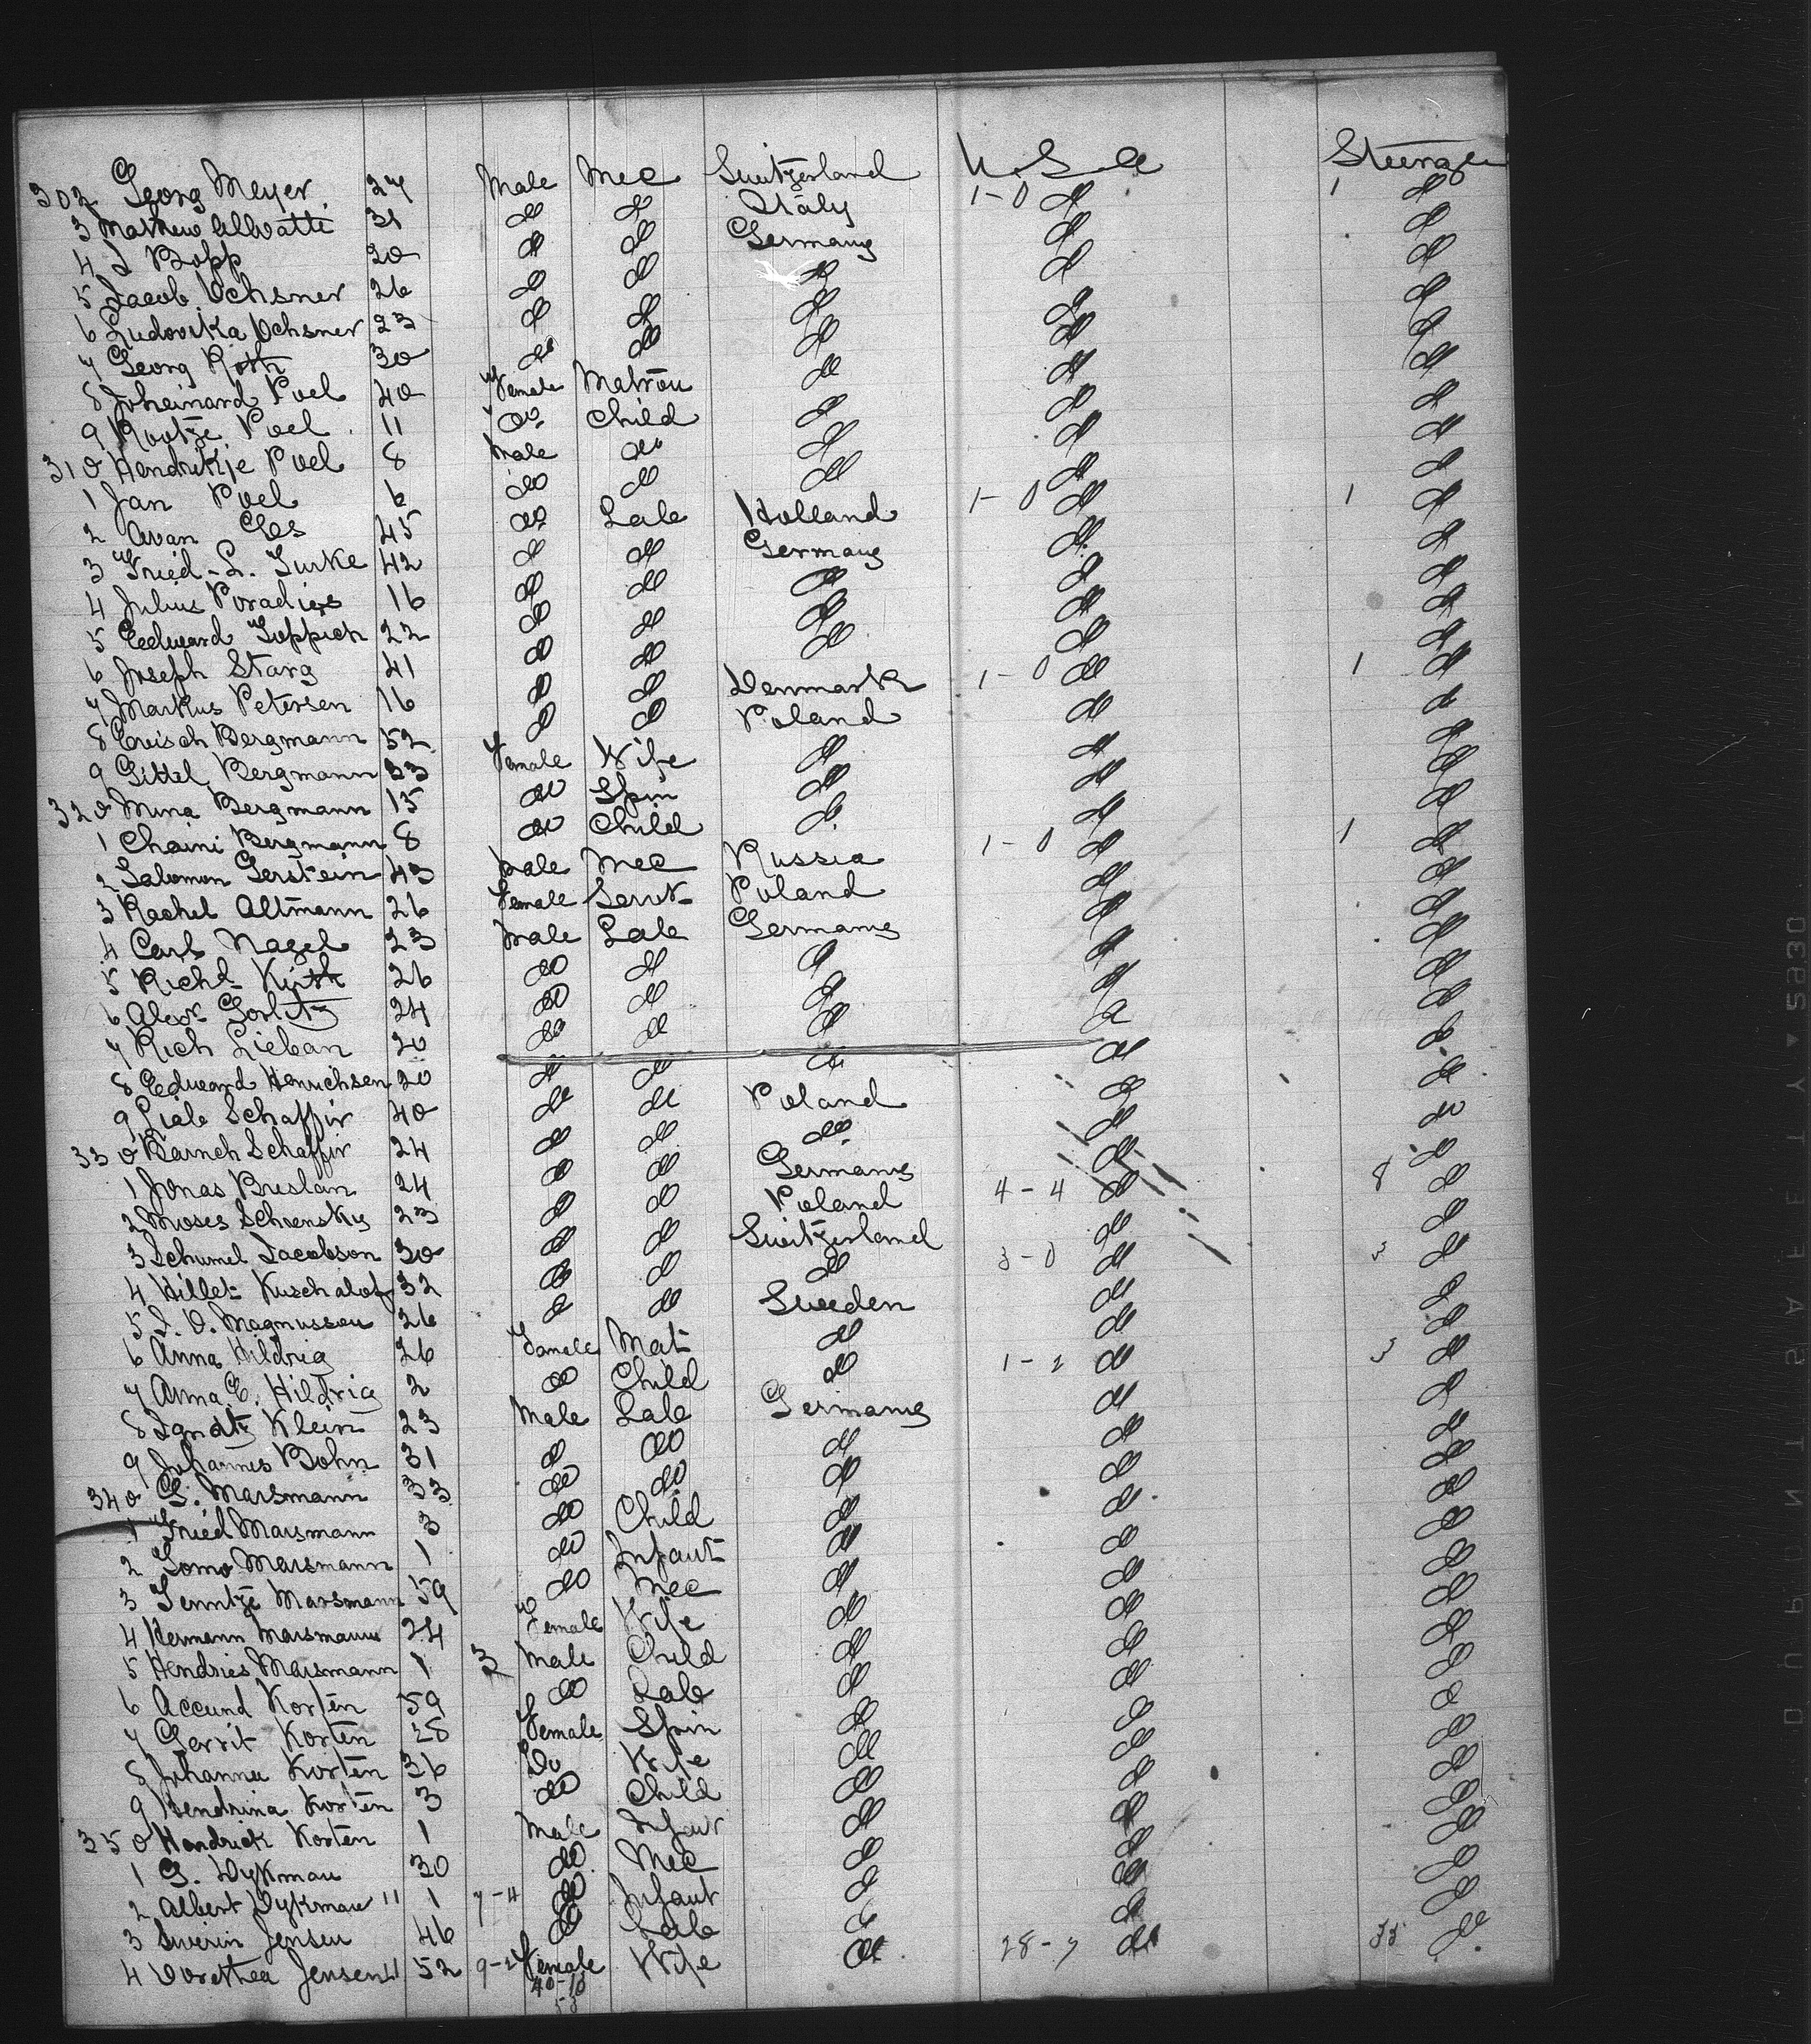 302 Georg Meyer 27 Male Mec Switzerland U.S.A Steerage
3 Mathew Albratti 31 do do Italy 1-0 do 1 do
4 J Bopp 20 do do Germany do do
5 Jacob Ochsner 26 do do do do do
6 Ludovika Ochsner 23 do do do do do
7 Georg Roth 30 do do do do do
8 Joheinard Poel 40 Female Matron do do do
9 Rootze Poel 11 do Child do do do
310 Hendrikje Poel 8 Male do do do do
1 Jan Poel 6 do do do do do
2 Avan Ges 45 do Lab Holland 1-0 do 1 do
3 Fried-L. Turke 42 do do Germany do do
4 Julius Poradies 16 do do do do do
5 Eedward Toppich 22 do do do do do
6 Joseph Starg 41 do do do do do
7 Markus Petersen 16 do do Denmark 1-0 do 1 do
8 Ereisch Bergmann 52 do do Poland do do
9 Gittel Bergmann 33 Female Wife do do do
320 Mina Bergmann 15 do Spin do do do
1 Chaini Bergmann 8 do Child do do do
2 Salomon Gerstein 43 Male Mec Russia 1-0 do 1 do
3 Rachel Altmann 26 Female Servt Poland do do
4 Carl Nagel 23 Male Lab Germany do do
5 Richd Kuth 26 do do do do do
6 Alexr Gorlitz 24 do do do do do
7 Rich Lieban 20 do do do do do
8 Eedward Henrichsen 20 do do do do do
9 Liebe Schaffir 40 do do Poland do do
330 Barneh Schaffir 24 do do do do do
1 Jonas Breslan 24 do do Germany do do
2 Moses Schoensky 23 do do Poland 4-4 do 8 do
3 Schumel Jacobson 30 do do Switzerland do do
4 Hillel Kuschalof 32 do do do 3-0 do 3 do
5 J. O. Magnusson 26 do do Sweden do do
6 Anna Hildrig 26 Female Mat do do do
7 Anna E. Hildrig 2 do Child do 1-2 do 3 do
8 Ignatz Klein 23 Male Lab Germany do do
9 Johannes Bohn 31 do do do do do
340 G. Marsmann 33 do do do do do
1 Fried Marsmann 3 do Child do do do
2 Tomo Marsmann 1 do Infant do do do
3 Tenntze Marsmann 59 do Mec do do do
4 Hermann Marsmann 24 Female Wife do do do
5 Hendries Marsmann 1 3 Male Child do do do
6 Accund Korten 59 do Lab do do do
7 Gerrit Korten 28 Female Spin do do do
8 Johanna Korten 36 Do Wife do do do
9 Hendrina Korten 3 do Child do do do
350 Hendrick Korten 1 Male Infant do do do
1 G. Dykman 30 do Mec do do do
2 Albert Dykman 11 1 7-4 do Infant do do do
3 Swerin Jensen 46 do Lab do do do
4 Dorethea Jensen 11 52 9-2 Female Wife do 28-7 do 35 do
40-10
53